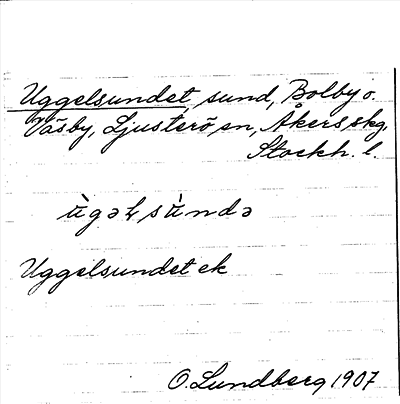 Uggelsundet, sund, Bolby o.
Väsby, Ljusterö sn, Åkers skg,
Stockh. l.
ùgəɫsùndə
Uggelsundet ek
O. Lundberg 1907